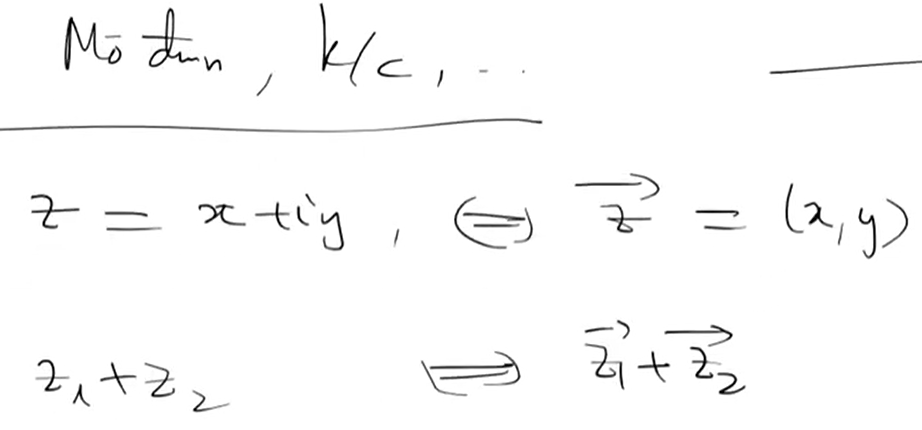 Mô đun, k/c, ...
z = x + iy, ⇔ \vec{z} = (x, y)
z₁ + z₂ ⇔ \vec{z₁} + \vec{z₂}